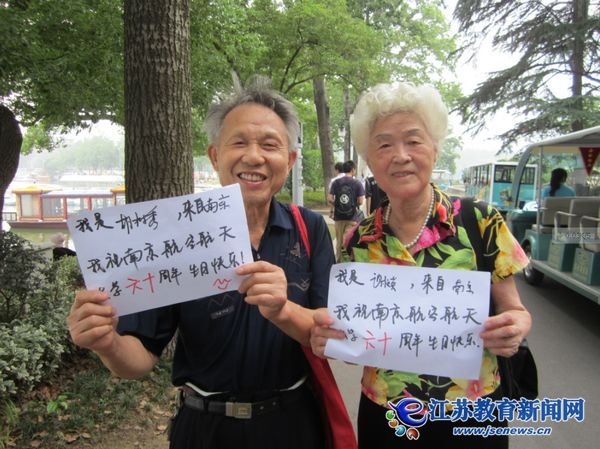 我是胡秀,来自南京
我祝南京航空航天
大学六十周年生日快乐!
我是胡,来自南京
我祝南京航空航天
大学六十周年生日快乐!
江苏教育新闻网
www.jsenews.cn